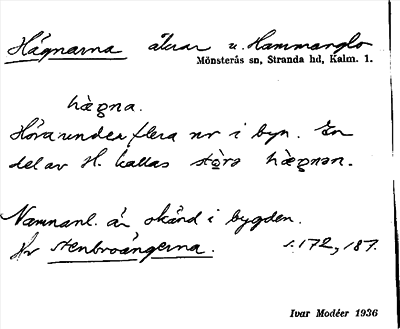 Hägnarna åkrar u. Hammarglo
Mönsterås sn, Stranda hd, Kalm. l.
hægna.
Höra under flera nr i byn. En
del av H. kallas störə hægnən.
Namnanl. är okänd i bygden.
Jfr Stenbroängerna. s. 172, 187.
Ivar Modéer 1936